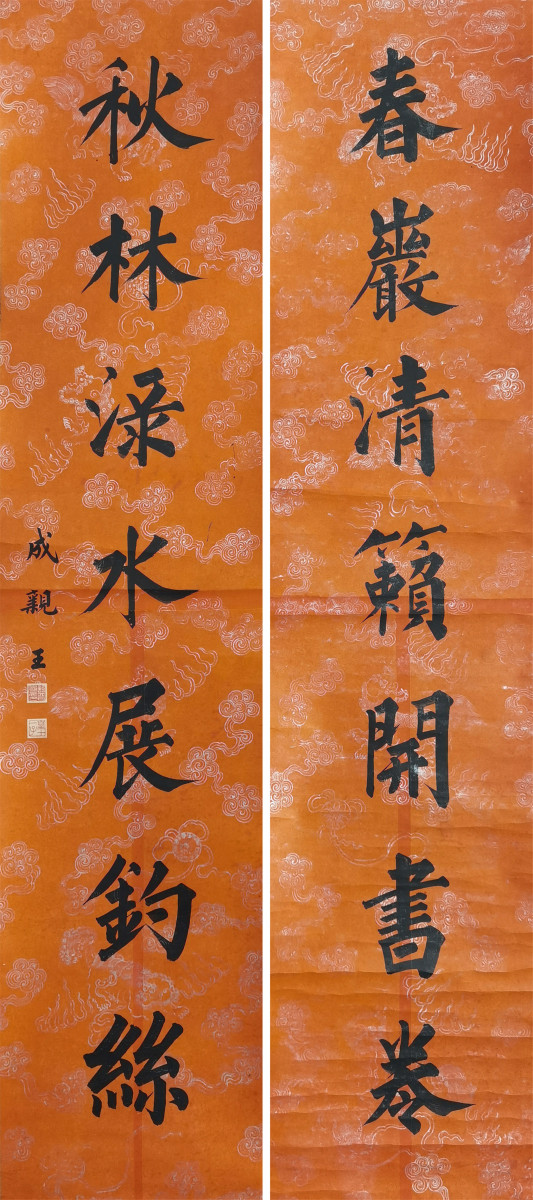 春巖清籟開書卷
秋林渌水展釣絲
成親王